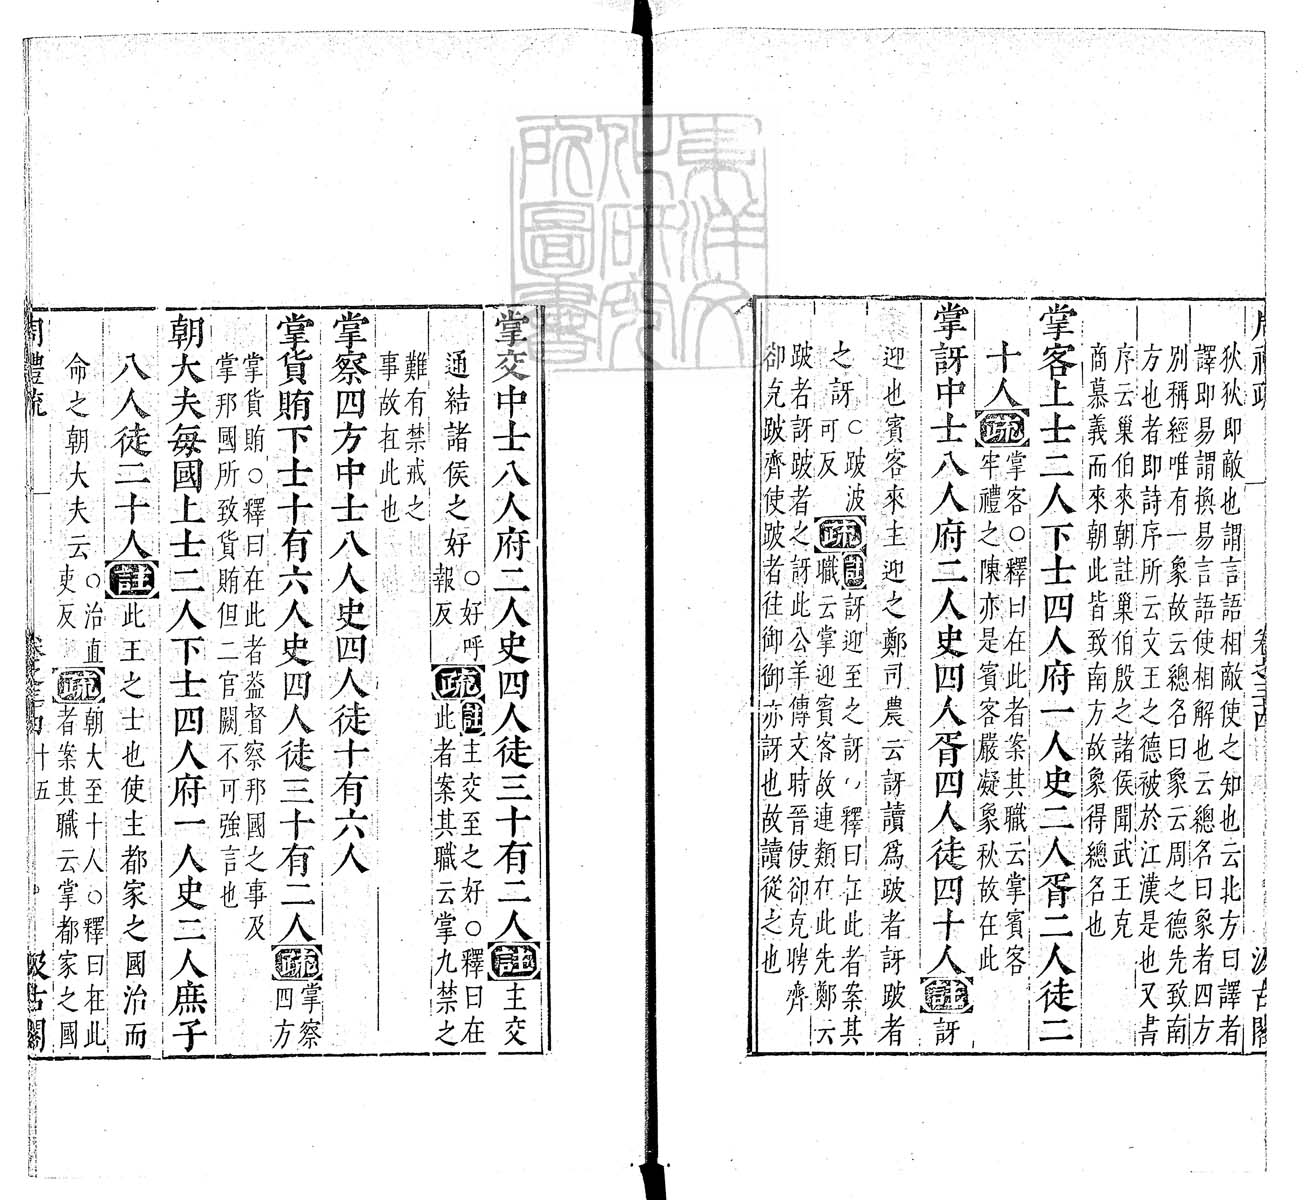 狄狄即敵也謂言語相敵使之知也云北方曰譯者
譯即易謂換易言語使相解也云總名曰象者四方
別稱經唯有一象故云總名曰象云周之德先致南
方也者即詩序所云文王之德被於江漢是也又書
序云巢伯來朝註巢伯殷之諸侯聞武王克
商慕義而來朝此皆致南方故象得總名也
掌客上士二人下士四人府一人史二人胥二人徒二
十人疏掌客○釋曰在此者案其職云掌賓客
牢禮之陳亦是賓客嚴凝象秋故在此
掌訝中士八人府二人史四人胥四人徒四十人註訝
迎也賓客來主迎之鄭司農云訝讀爲跛者訝跛者
之訝○跛波
可反疏註訝迎至之訝○釋曰在此者案其
職云掌迎賓客故連類在此先鄭云
跛者訝跛者之訝此公羊傳文時晉使卻克聘齊
卻克跛齊使跛者往御御亦訝也故讀從之也
周禮疏 卷之三十四 汲古閣
掌交中士八人府二人史四人徒三十有二人註主交
通結諸侯之好○好呼
報反疏註主交至之好○釋曰在
此者案其職云掌九禁之
難有禁戒之
事故在此也
掌察四方中士八人史四人徒十有六人
掌貨賄下士十有六人史四人徒三十有二人疏掌察
四方
掌貨賄○釋曰在此者葢督察邦國之事及
掌邦國所致貨賄但二官闕不可強言也
朝大夫每國上士二人下士四人府一人史二人庶子
八人徒二十人註此王之士也使主都家之國治而
命之朝大夫云○治直
吏反疏朝大至十人○釋曰在此
者案其職云掌都家之國
周禮疏 卷之三十四 十五 汲古閣
東洋文化研究所圖書